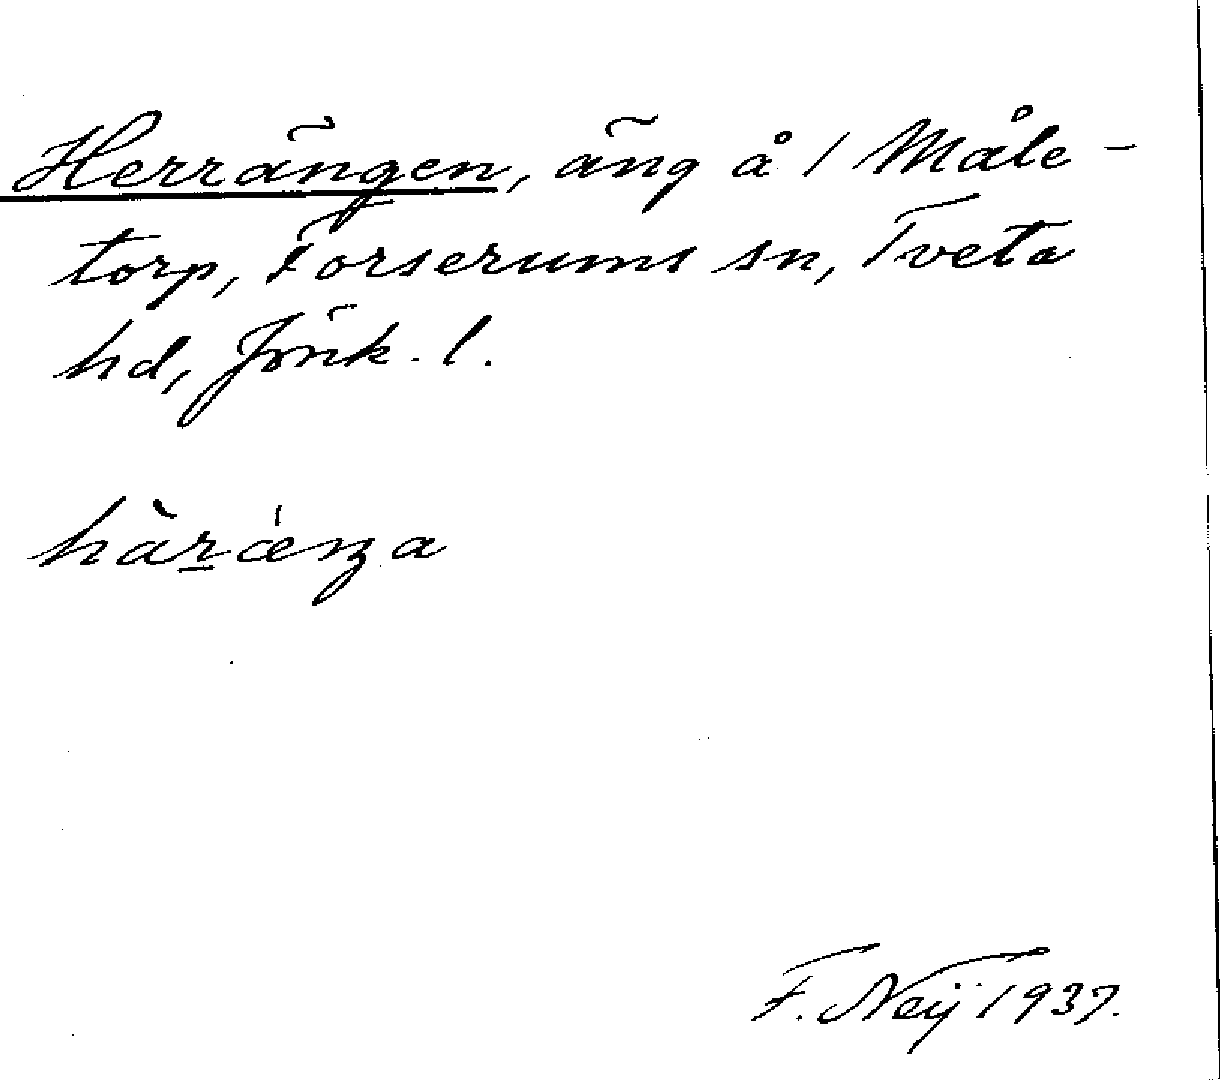 Herrängen, äng å 1 Måle-
torp, Forserums sn, Tveta
hd, Jönk. l.
hàrǽŋa
F. Neij 1937.